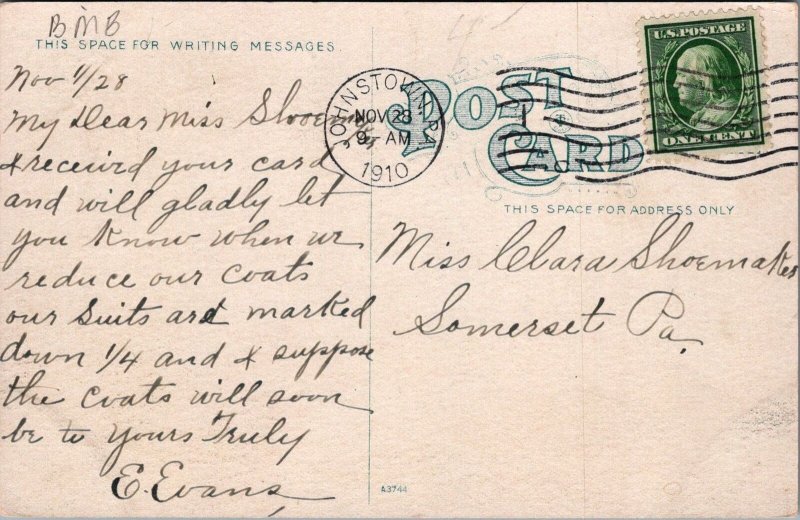 BMB
THIS SPACE FOR WRITING MESSAGES.
Nov 11/28
My Dear Miss Shoemaker
I received your card
and will gladly let
you know when we
reduce our coats
our suits are marked
down 1/4 and I suppose
the coats will soon
be to Yours Truly
E. Evans,
JOHNSTOWN, PA.
NOV 28
9 AM
1910
POST CARD
U.S. POSTAGE
ONE CENT
THIS SPACE FOR ADDRESS ONLY
Miss Clara Shoemaker
Somerset Pa.
A3744